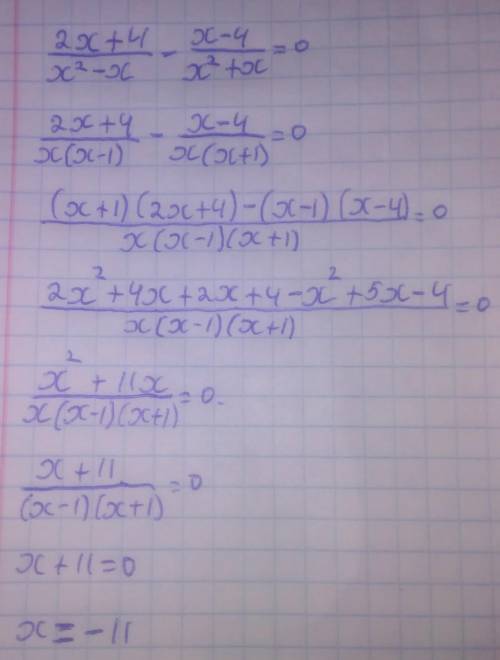 (2x+4)/(x²-x) - (x-4)/(x²+x) = 0
(2x+4)/(x(x-1)) - (x-4)/(x(x+1)) = 0
((x+1)(2x+4)-(x-1)(x-4))/(x(x-1)(x+1)) = 0
(2x²+4x+2x+4-x²+5x-4)/(x(x-1)(x+1)) = 0
(x²+11x)/(x(x-1)(x+1)) = 0.
(x+11)/((x-1)(x+1)) = 0
x+11=0
x=-11